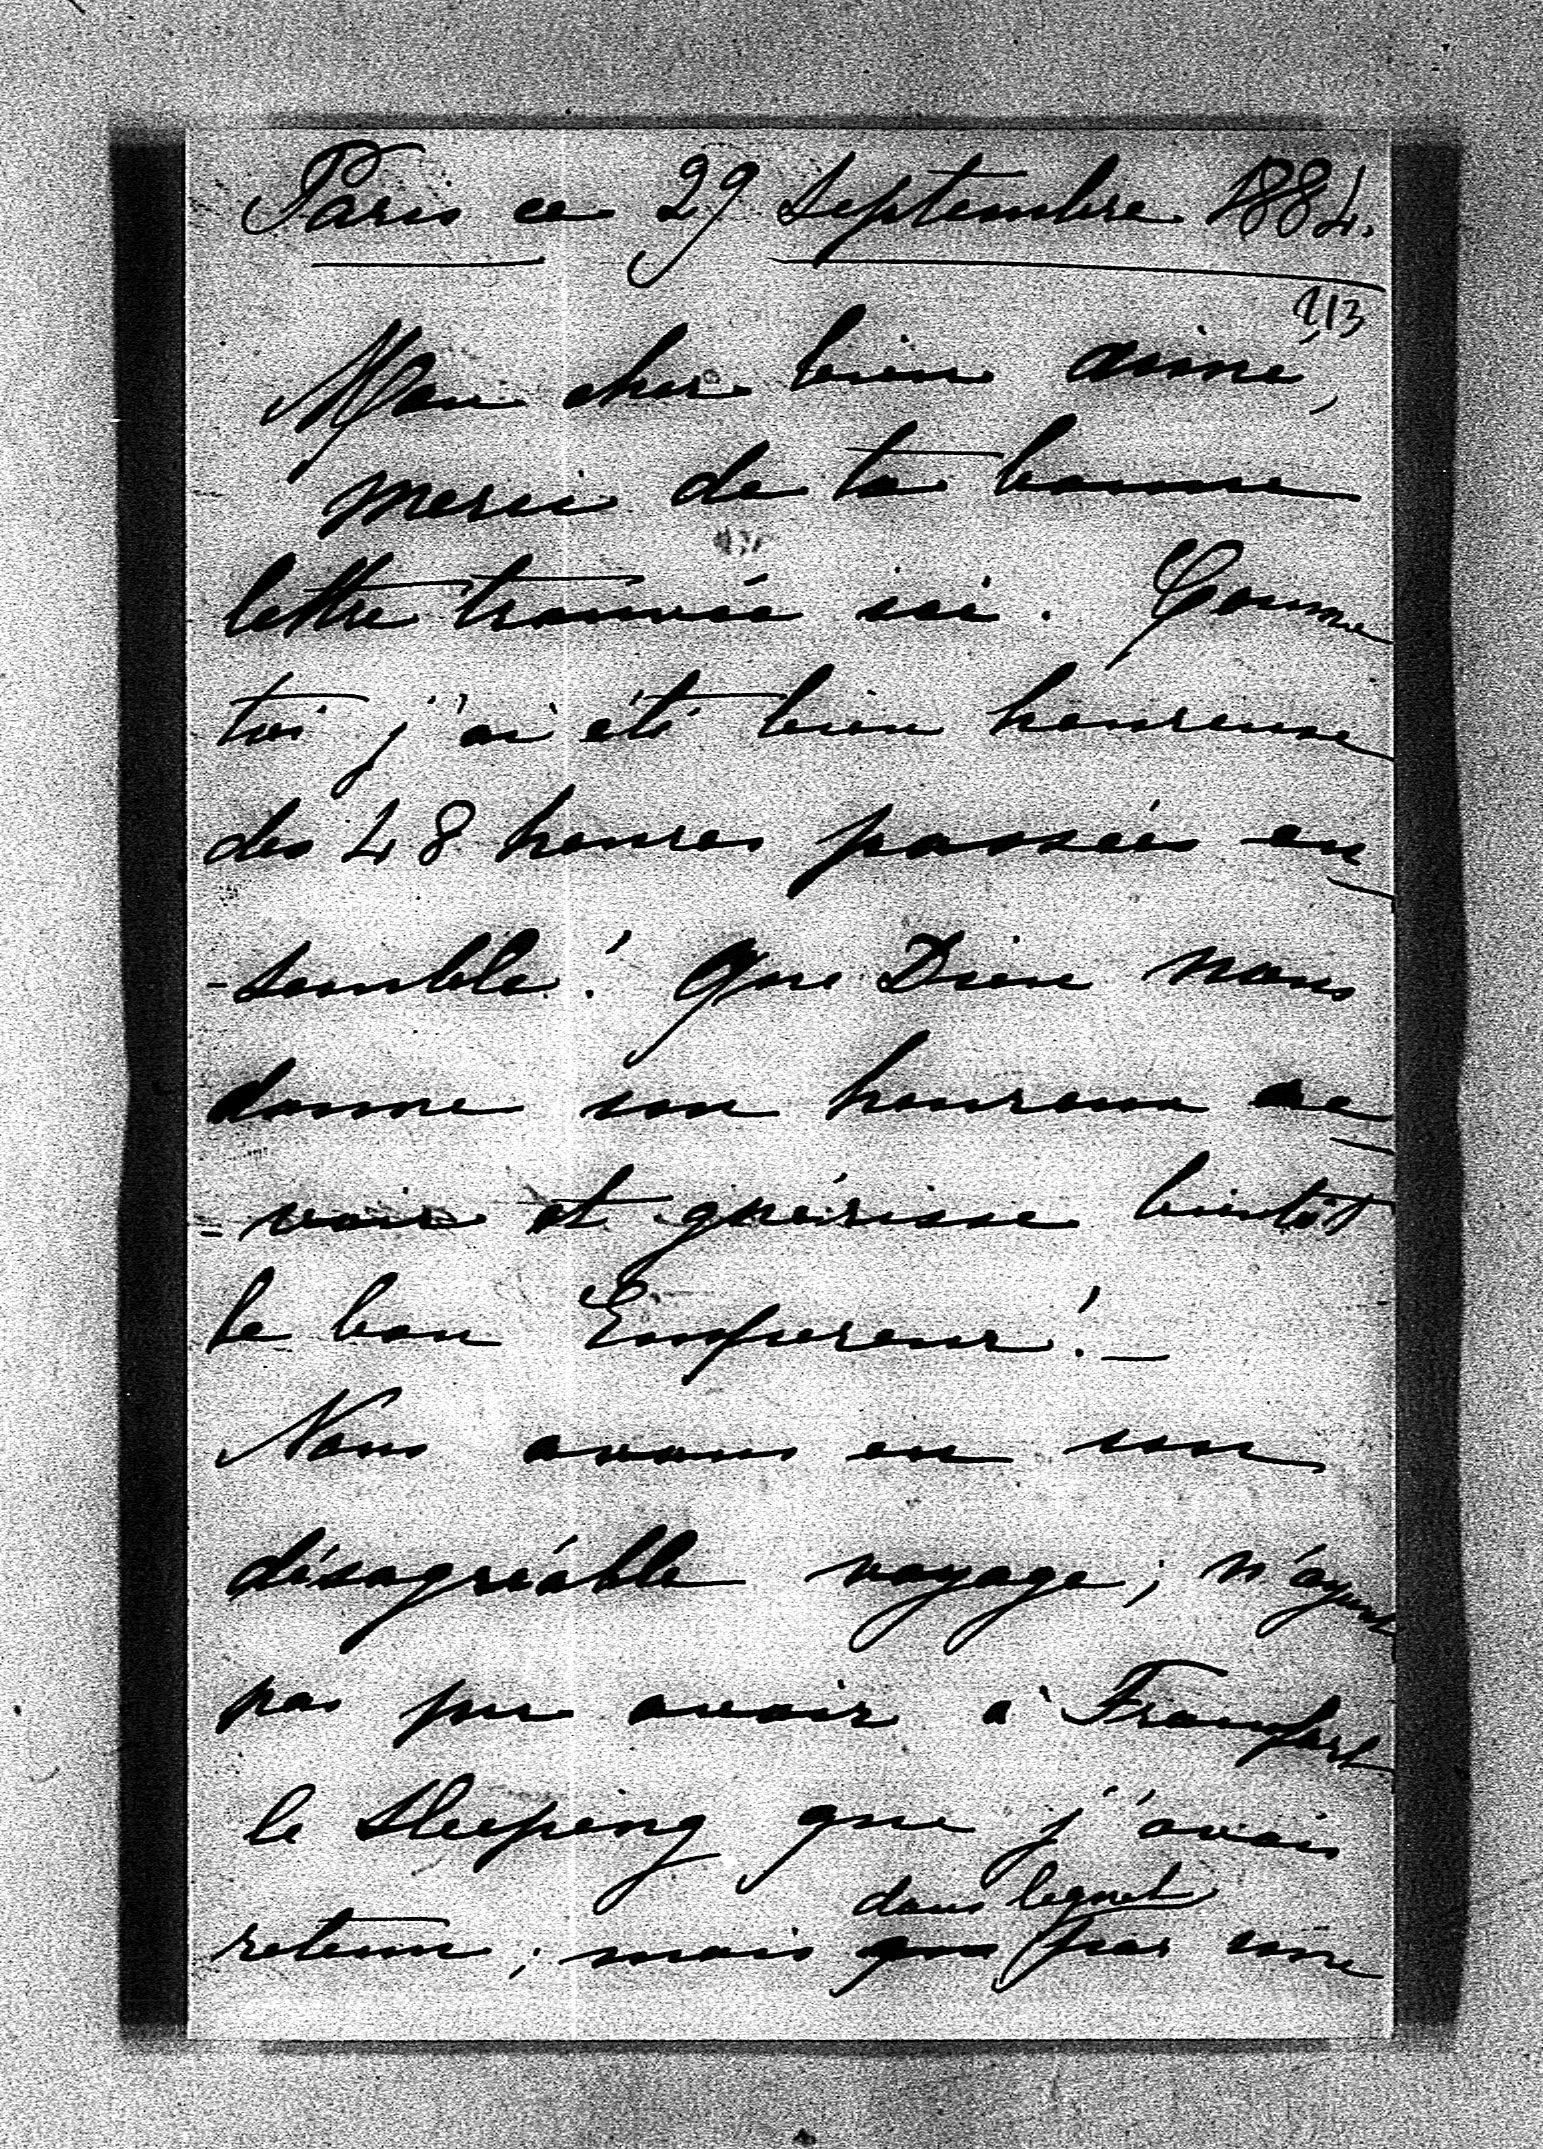 Paris ce 29 Septembre 1884.
113
Mon cher bien aimé,
merci de ta bonne
lettre trouvée ici. Comme
toi j'ai été bien heureuse
des 48 heures passées en
-semble! Que Dieu nous
donne un heureux re
-voir et guérisse bientôt
le bon Empereur! _
Nous avons eu un
désagréable voyage; n'ayant
pas pu avoir à Francfort
le Sleeping que j'avais
dans lequel
retenu; mais que par une